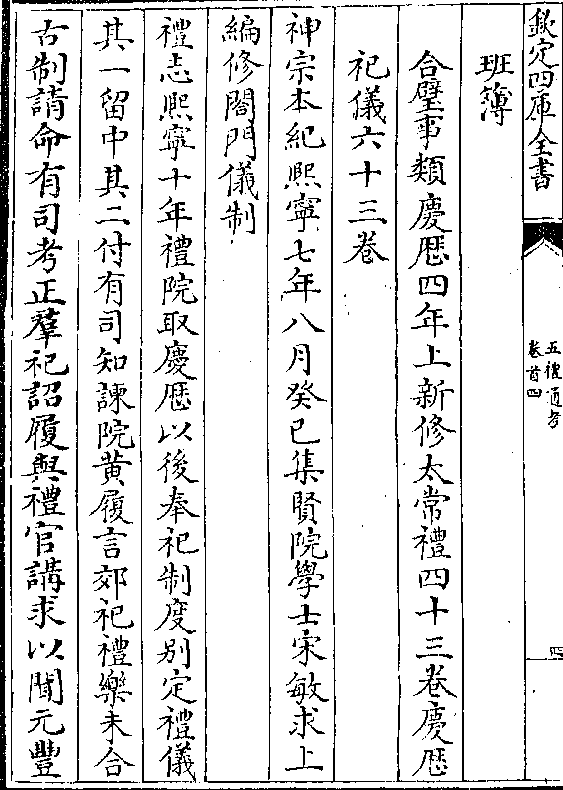 欽定四庫全書
五禮通考
卷首四
四
班簿
合璧事類慶厯四年上新修太常禮四十三卷慶厯
祀儀六十三卷
神宗本紀熙寧七年八月癸巳集賢院學士宋敏求上
編修閤門儀制
禮志熙寧十年禮院取慶厯以後奉祀制度别定禮儀
其一留中其二付有司知諫院黄履言郊祀禮樂未合
古制請命有司考正羣祀詔履與禮官講求以聞元豐